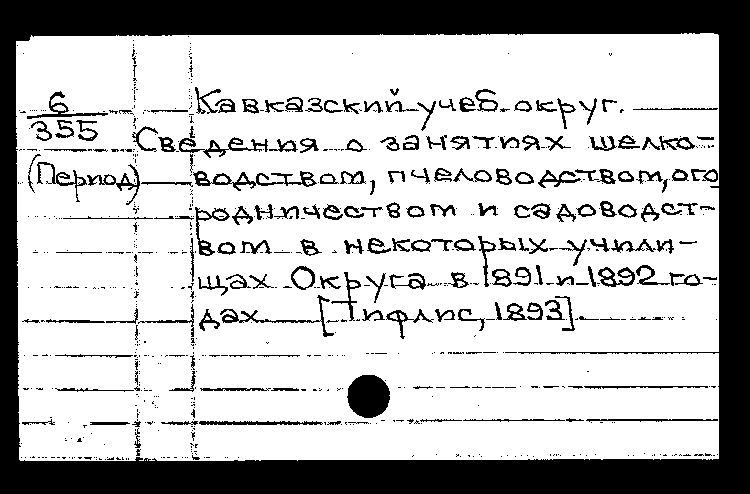 6
355
(Период)
Кавказский учеб. округ.
Сведения о занятиях шелко-
водством, пчеловодством, ого
родничеством и садоводст-
вом в некоторых учили-
щах Округа в 1891 и 1892 го-
дах [Тифлис, 1893].